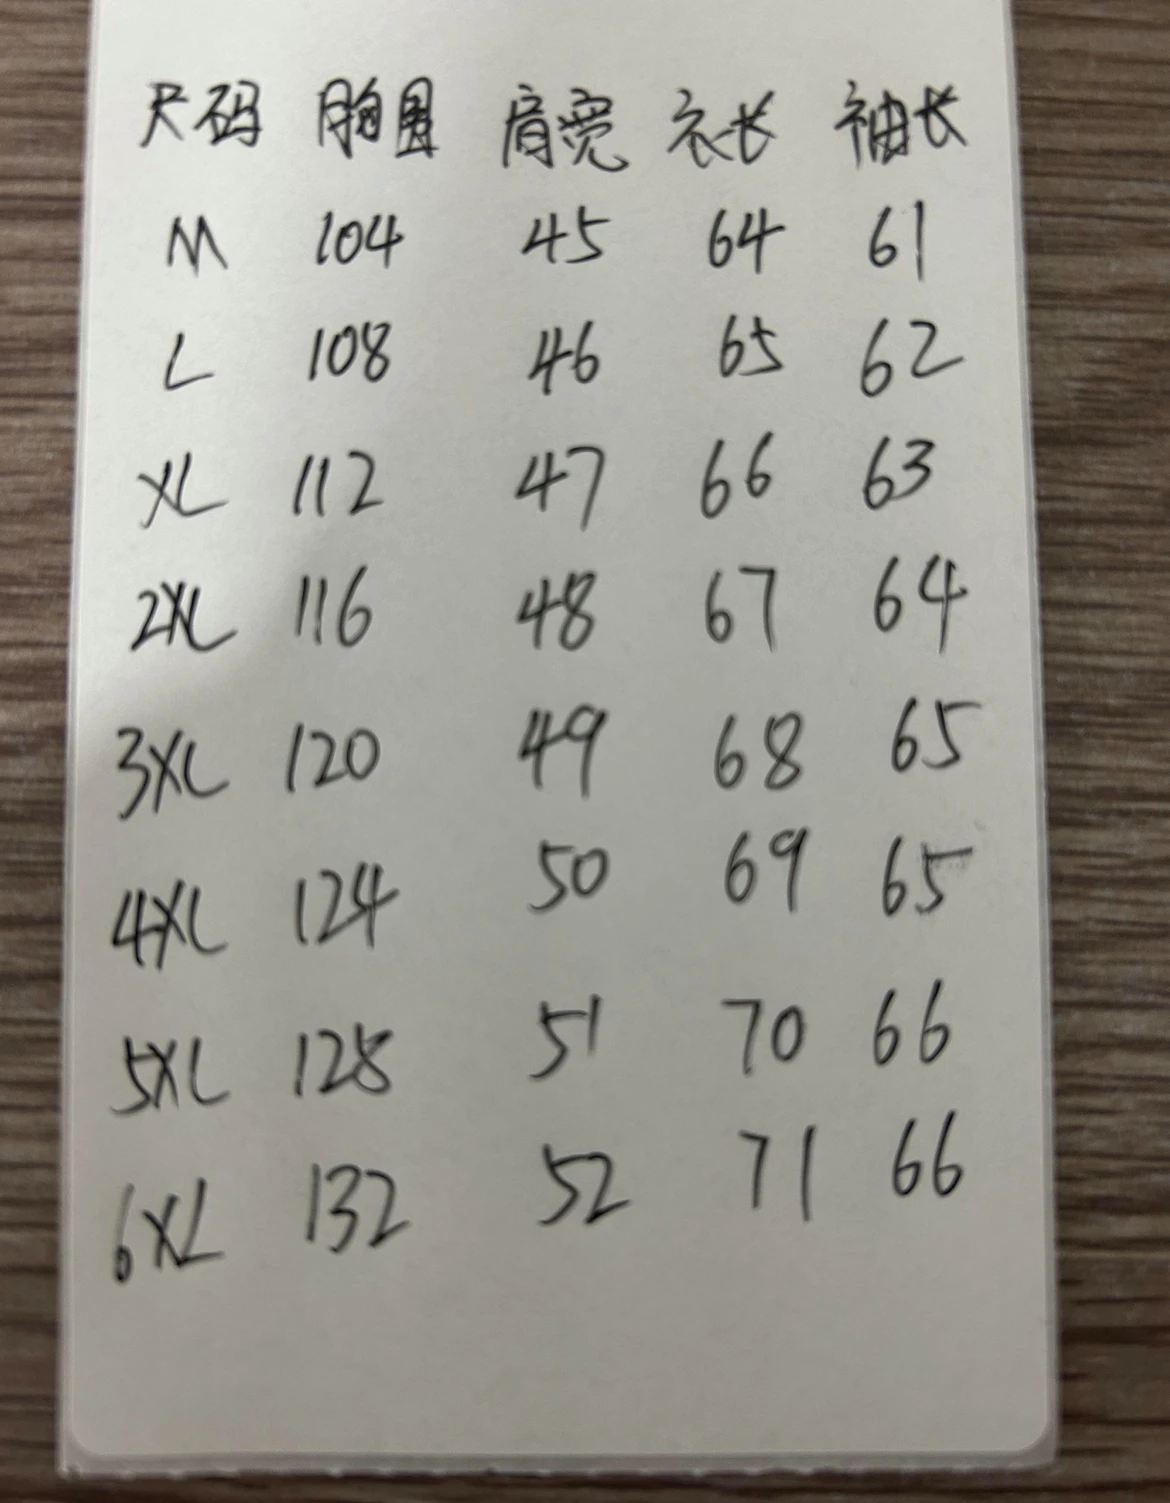 尺码 胸围 肩宽 衣长 袖长
M 104 45 64 61
L 108 46 65 62
XL 112 47 66 63
2XL 116 48 67 64
3XL 120 49 68 65
4XL 124 50 69 65
5XL 128 51 70 66
6XL 132 52 71 66